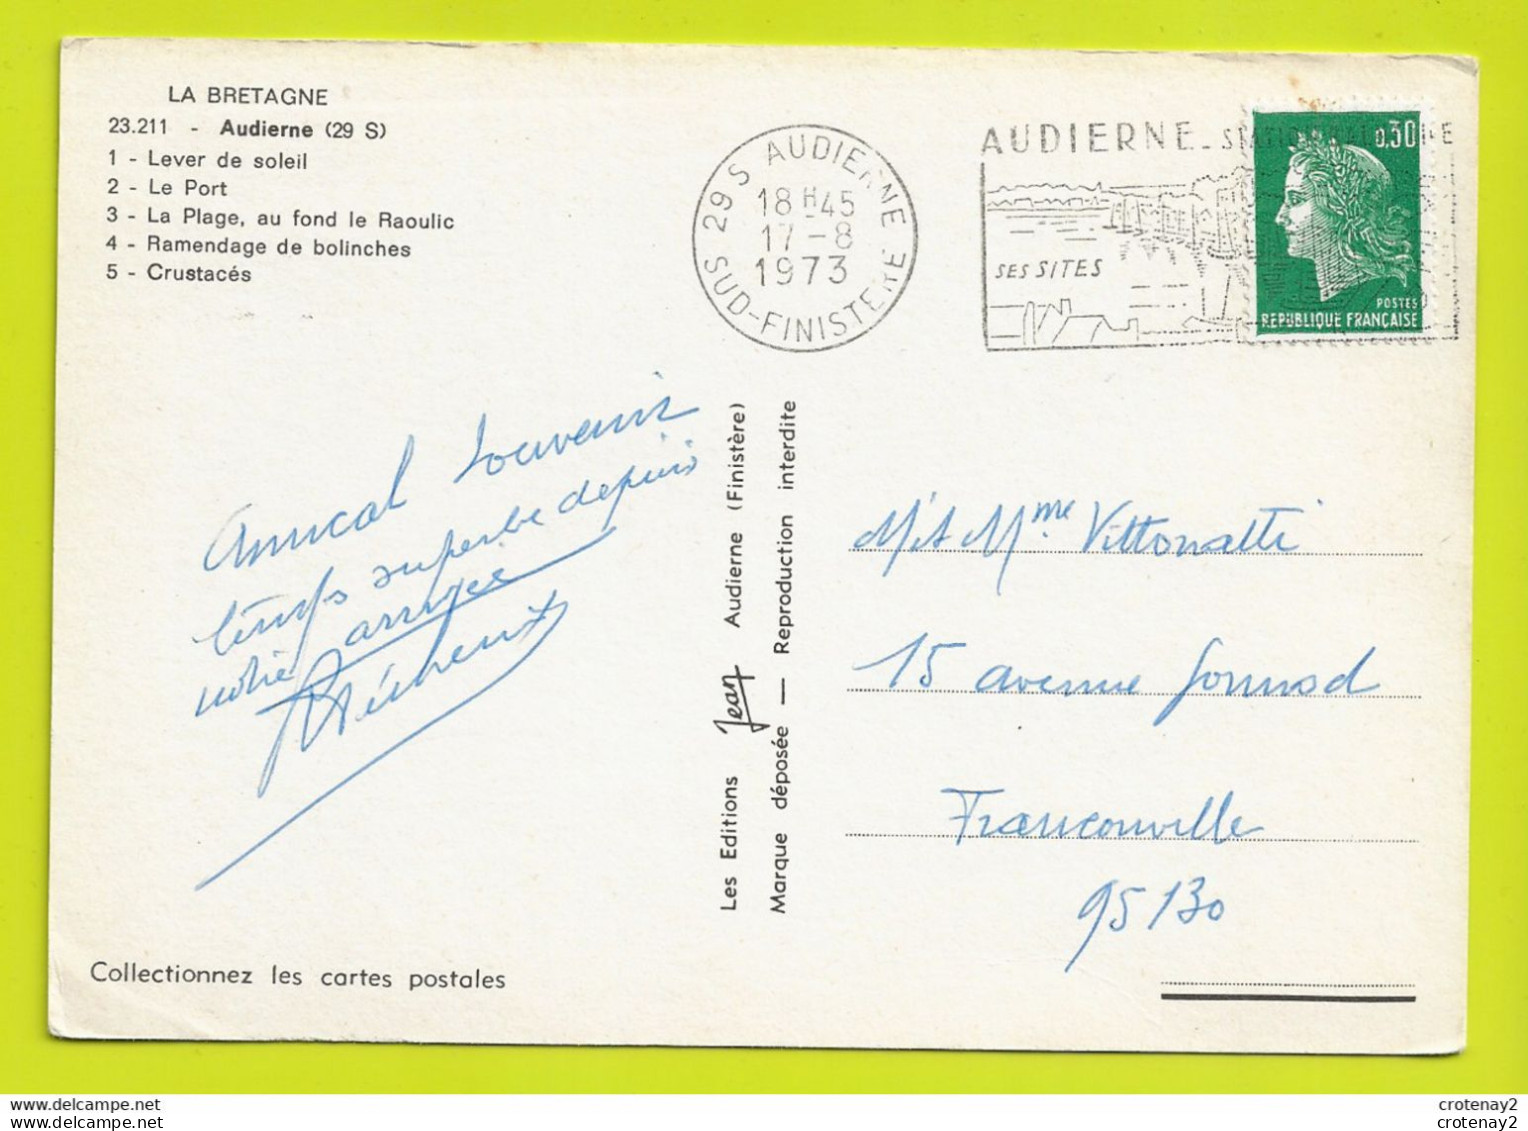 LA BRETAGNE
23.211 - Audierne (29 S)
1 - Lever de soleil
2 - Le Port
3 - La Plage, au fond le Raoulic
4 - Ramendage de bolinches
5 - Crustacés
29 S AUDIERNE
18 H 45
17 - 8
1973
SUD-FINISTERE
AUDIERNE - STATION
SES SITES
0,30
POSTES
REPUBLIQUE FRANÇAISE
Amical souvenir
temps superbe depuis
notre arrivée
Les Editions Jean Audierne (Finistère)
Marque déposée — Reproduction interdite
M. et Mme Vittonatti
15 avenue
Franconville
95130
Collectionnez les cartes postales
crotenay2
crotenay2